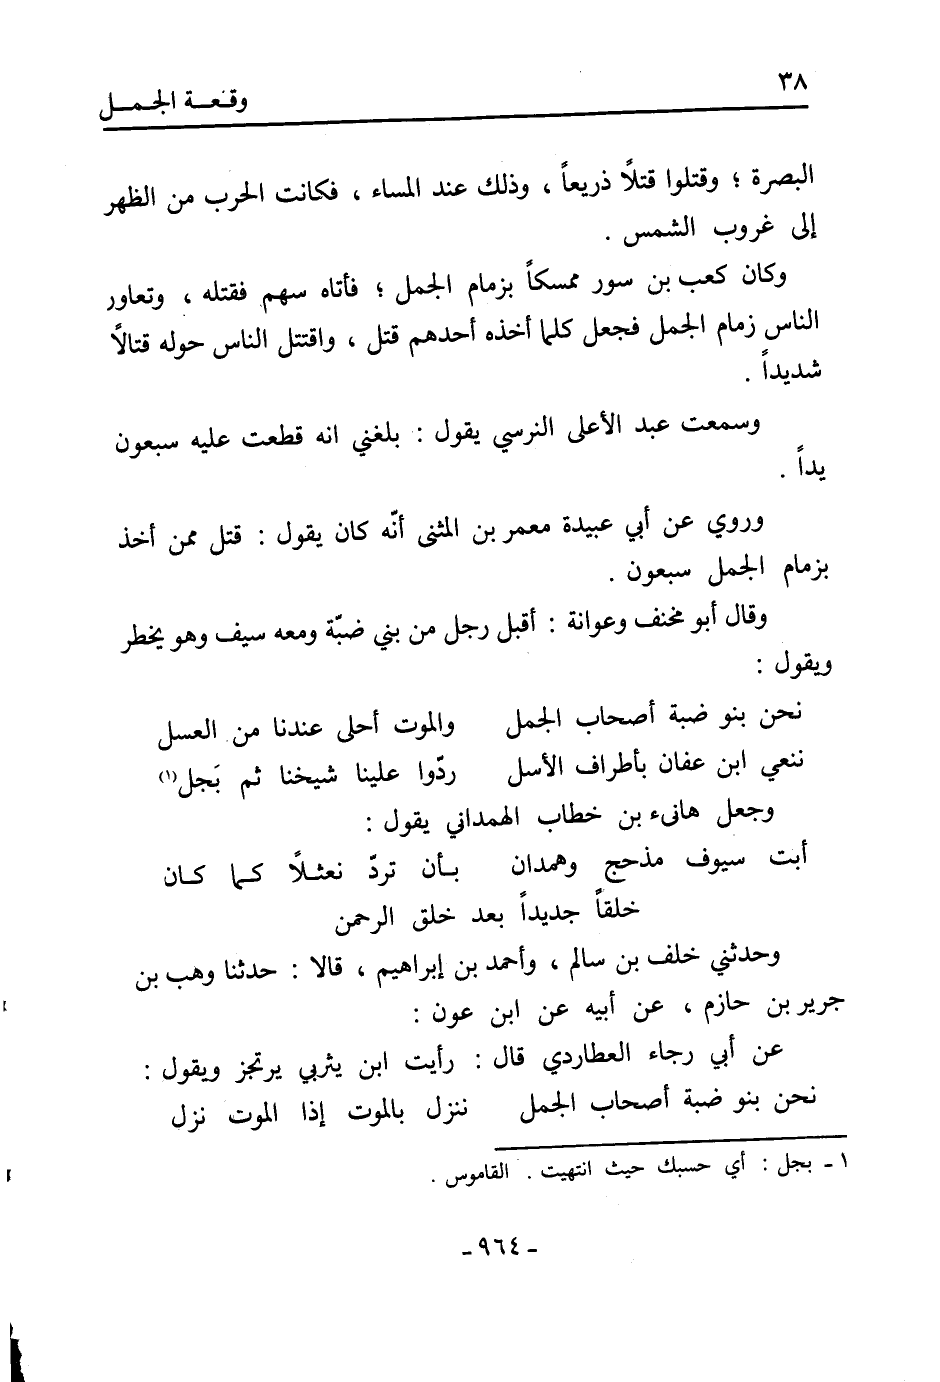 ٣٨
وقعة الجمل
البصرة ؛ وقتلوا قتلاً ذريعاً ، وذلك عند المساء ، فكانت الحرب من الظهر
إلى غروب الشمس .
وكان كعب بن سور ممسكاً بزمام الجمل ؛ فأتاه سهم فقتله ، وتعاور
الناس زمام الجمل فجعل كلما أخذه أحدهم قتل ، واقتتل الناس حوله قتالاً
شديداً .
وسمعت عبد الأعلى النرسي يقول : بلغني انه قطعت عليه سبعون
يداً .
وروي عن أبي عبيدة معمر بن المثنى أنّه كان يقول : قتل ممن أخذ
بزمام الجمل سبعون .
وقال أبو مخنف وعوانة : أقبل رجل من بني ضبّة ومعه سيف وهو يخطر
ويقول :
نحن بنو ضبة أصحاب الجمل والموت أحلى عندنا من العسل
ننعي ابن عفان بأطراف الأسل ردّوا علينا شيخنا ثم بَجل(١)
وجعل هانىء بن خطاب الهمداني يقول :
أبت سيوف مذحج وهمدان بأن تردّ نعثلاً كما كان
خلقاً جديداً بعد خلق الرحمن
وحدثني خلف بن سالم ، وأحمد بن إبراهيم ، قالا : حدثنا وهب بن
جرير بن حازم ، عن أبيه عن ابن عون :
عن أبي رجاء العطاردي قال : رأيت ابن يثربي يرتجز ويقول :
نحن بنو ضبة أصحاب الجمل ننزل بالموت إذا الموت نزل
١ ـ بجل : أي حسبك حيث انتهيت . القاموس .
ـ ٩٦٤ ـ